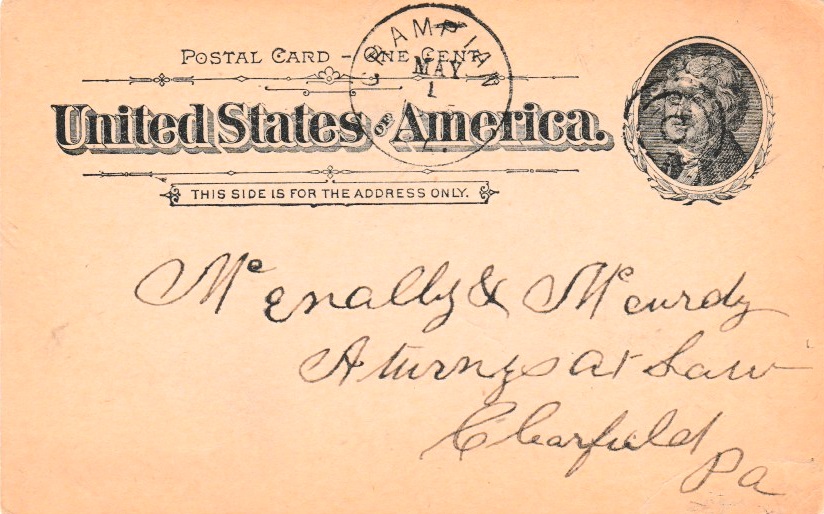 POSTAL CARD – ONE CENT.
GRAMPIAN
MAY
1
United States of America.
THIS SIDE IS FOR THE ADDRESS ONLY.
Mc enally & Mc curdy
Aturnys at Law
Clearfield
Pa